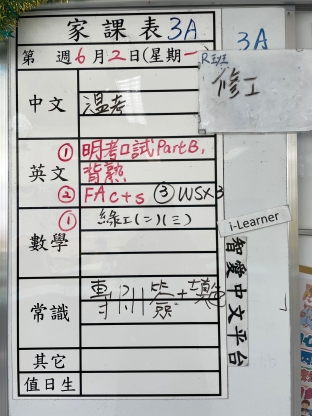 家課表 3A
第 週 6 月 2 日(星期一)
3A
R班
修工
中文
溫考
① 明考口試 Part B,
英文 背熟
② FActs ③ WSX3
數學 ① 綠工(二)(三)
i-Learner
智愛中文平台
常識 專冊簽+填
其它
值日生